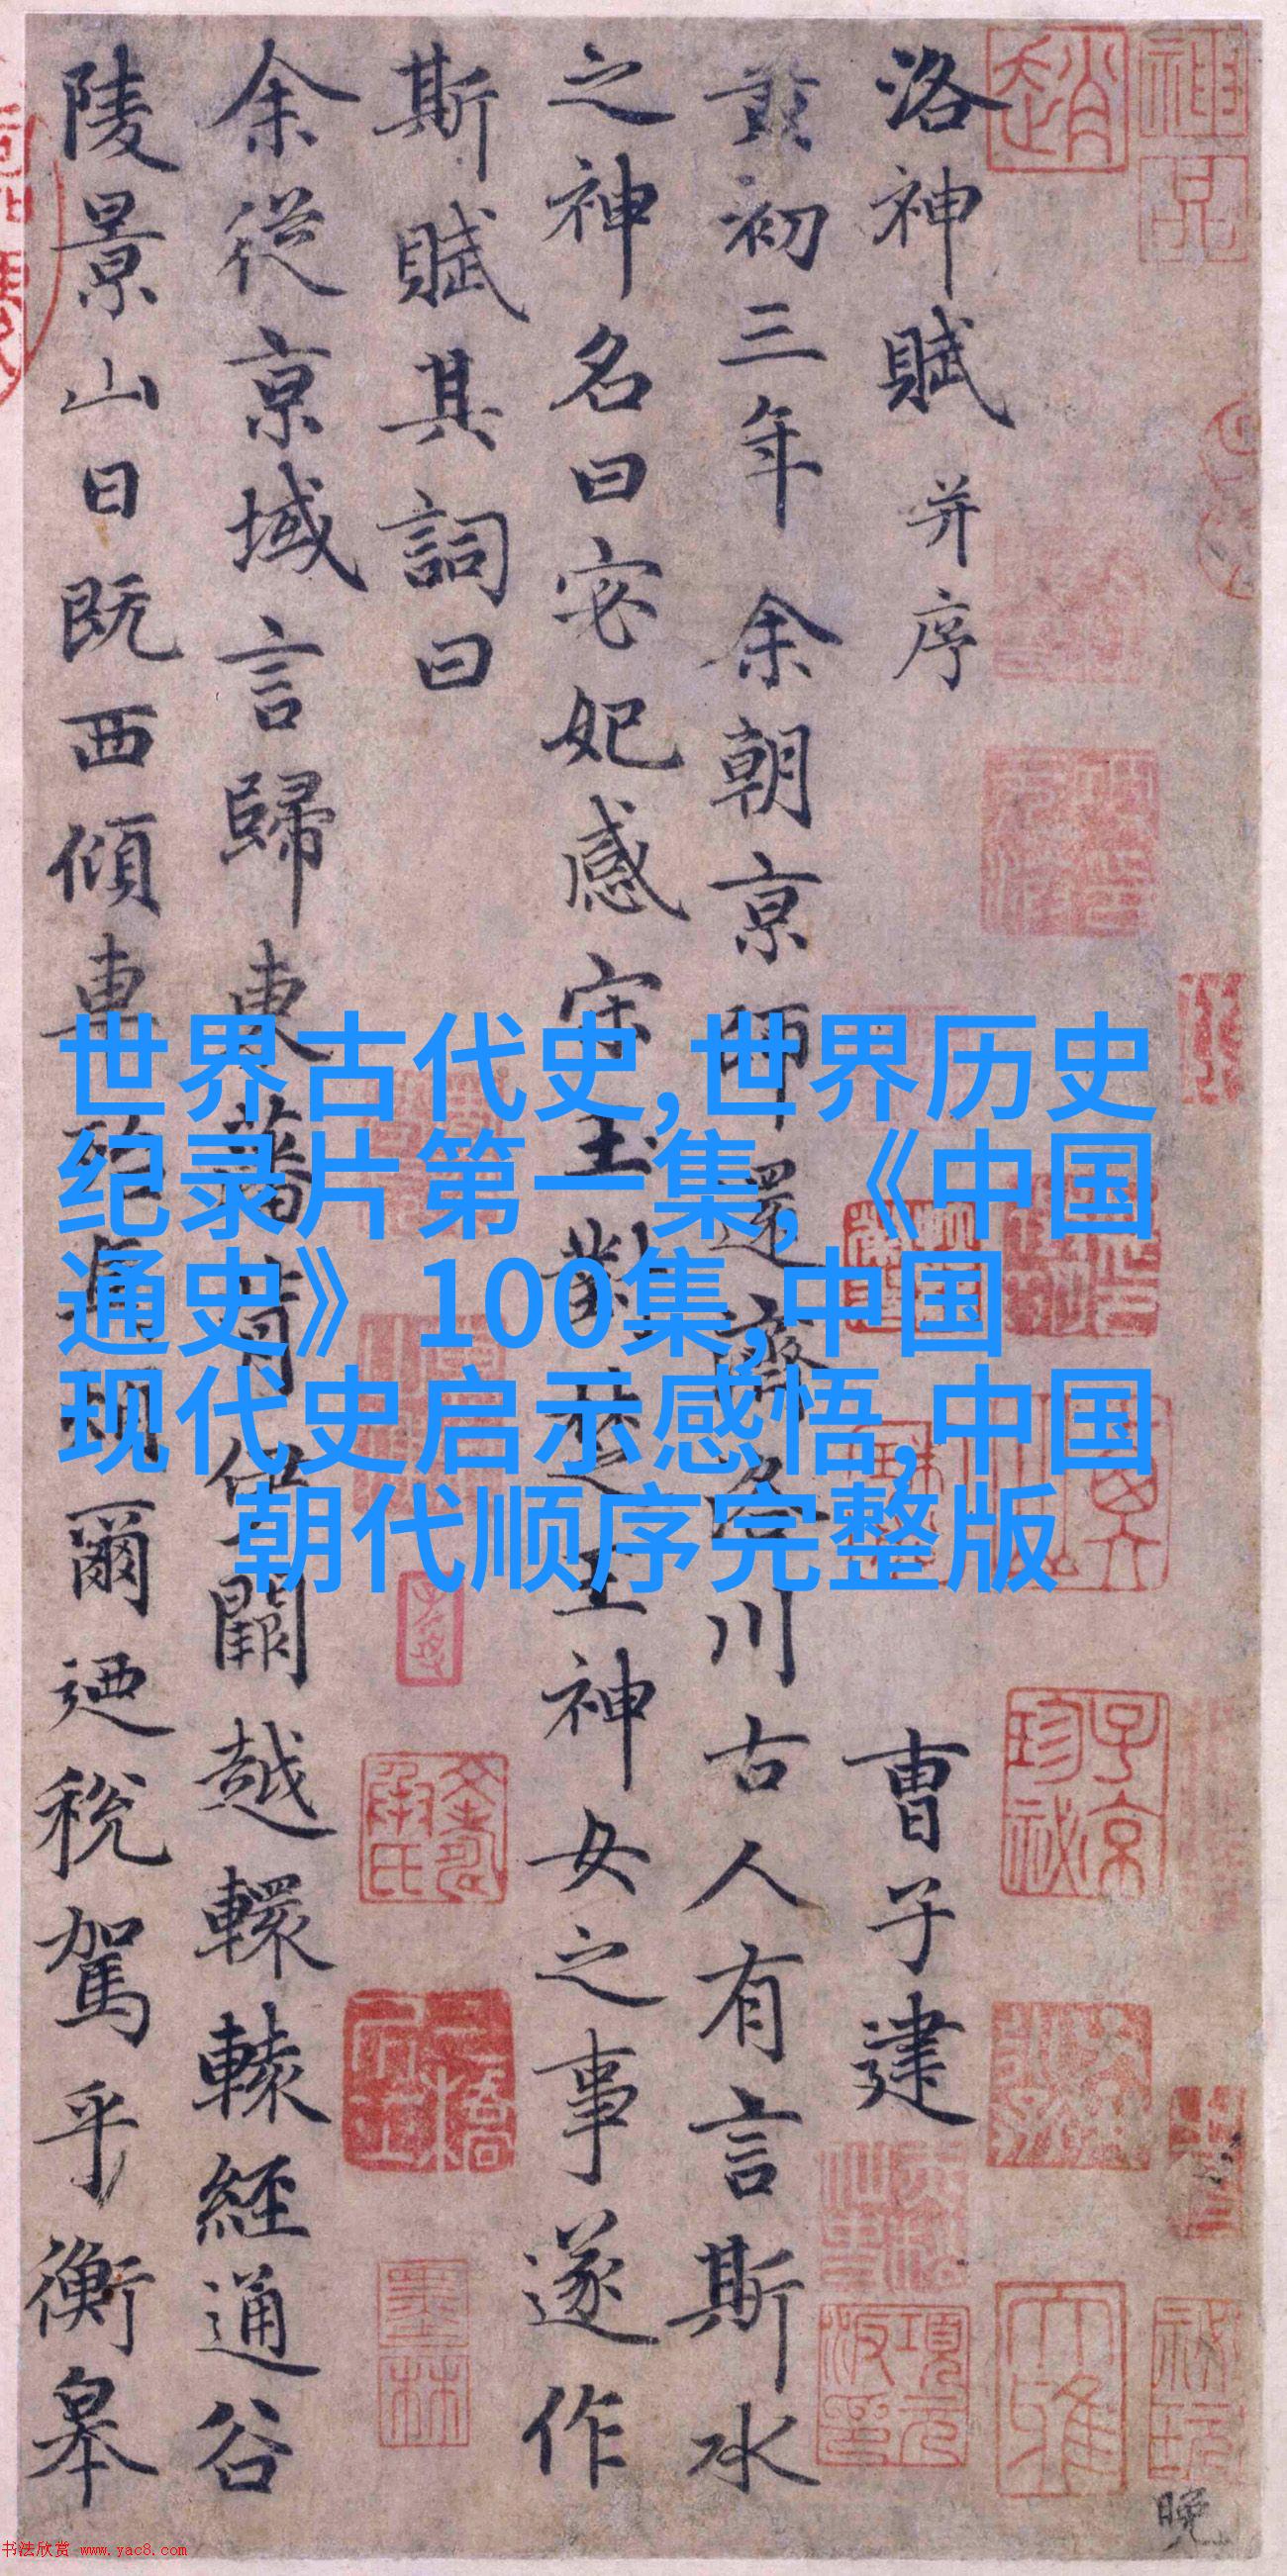 洛神賦 并序 曹子建
黃初三年余朝京師還濟洛川古人有言斯水
之神名曰宓妃感宋玉對楚王神女之事遂作
斯賦其詞曰
余從京域言歸東藩背伊闕越轘轅經通谷
陵景山日既西傾車殆馬煩爾迺稅駕乎衡皋
世界古代史,世界历史
纪录片第一集,《中国
通史》100集,中国
现代史启示感悟,中国
朝代顺序完整版
趙
子京珍祕
墨林
項元汴印
晚
书法欣赏 www.yac8.com